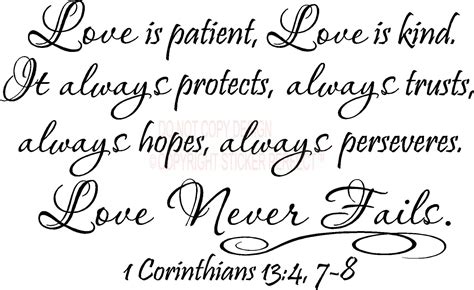 Love is patient, Love is kind.
It always protects, always trusts,
always hopes, always perseveres.
DO NOT COPY DESIGN
©COPYRIGHT STICKER PERFECT™
Love Never Fails.
1 Corinthians 13:4, 7-8